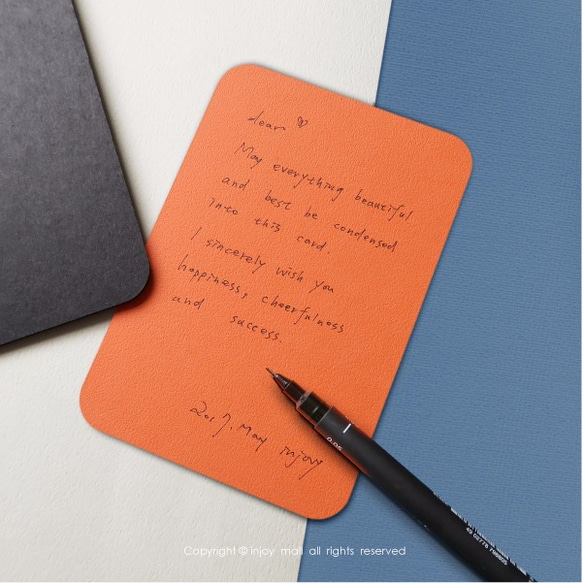 dear ♡
May everything beautiful
and best be condensed
into this card.
I sincerely wish you
happiness, cheerfulness
and success.
2017. May injoy
0.05
Copyright © injoy mall all rights reserved